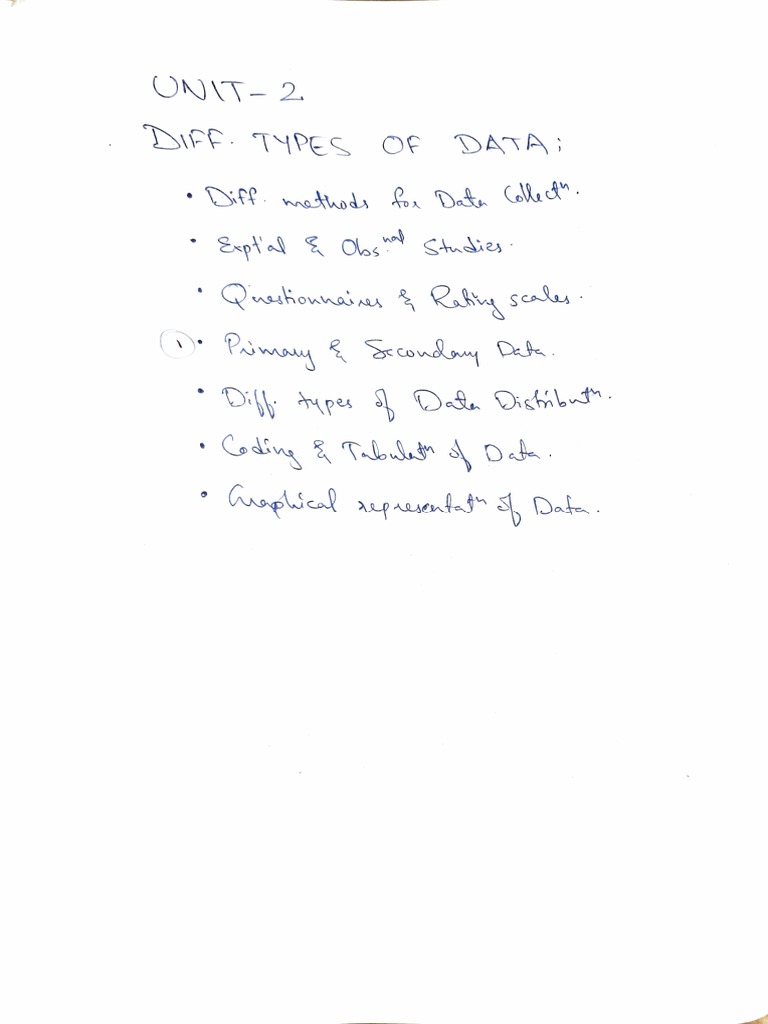 UNIT - 2
DIFF. TYPES OF DATA:
• Diff. methods for Data Collectn.
• Expt'al & Obs.nal Studies.
• Questionnaires & Rating scales.
1 • Primary & Secondary Data.
• Diff. types of Data Distributn.
• Coding & Tabulatn of Data.
• Graphical representatn of Data.